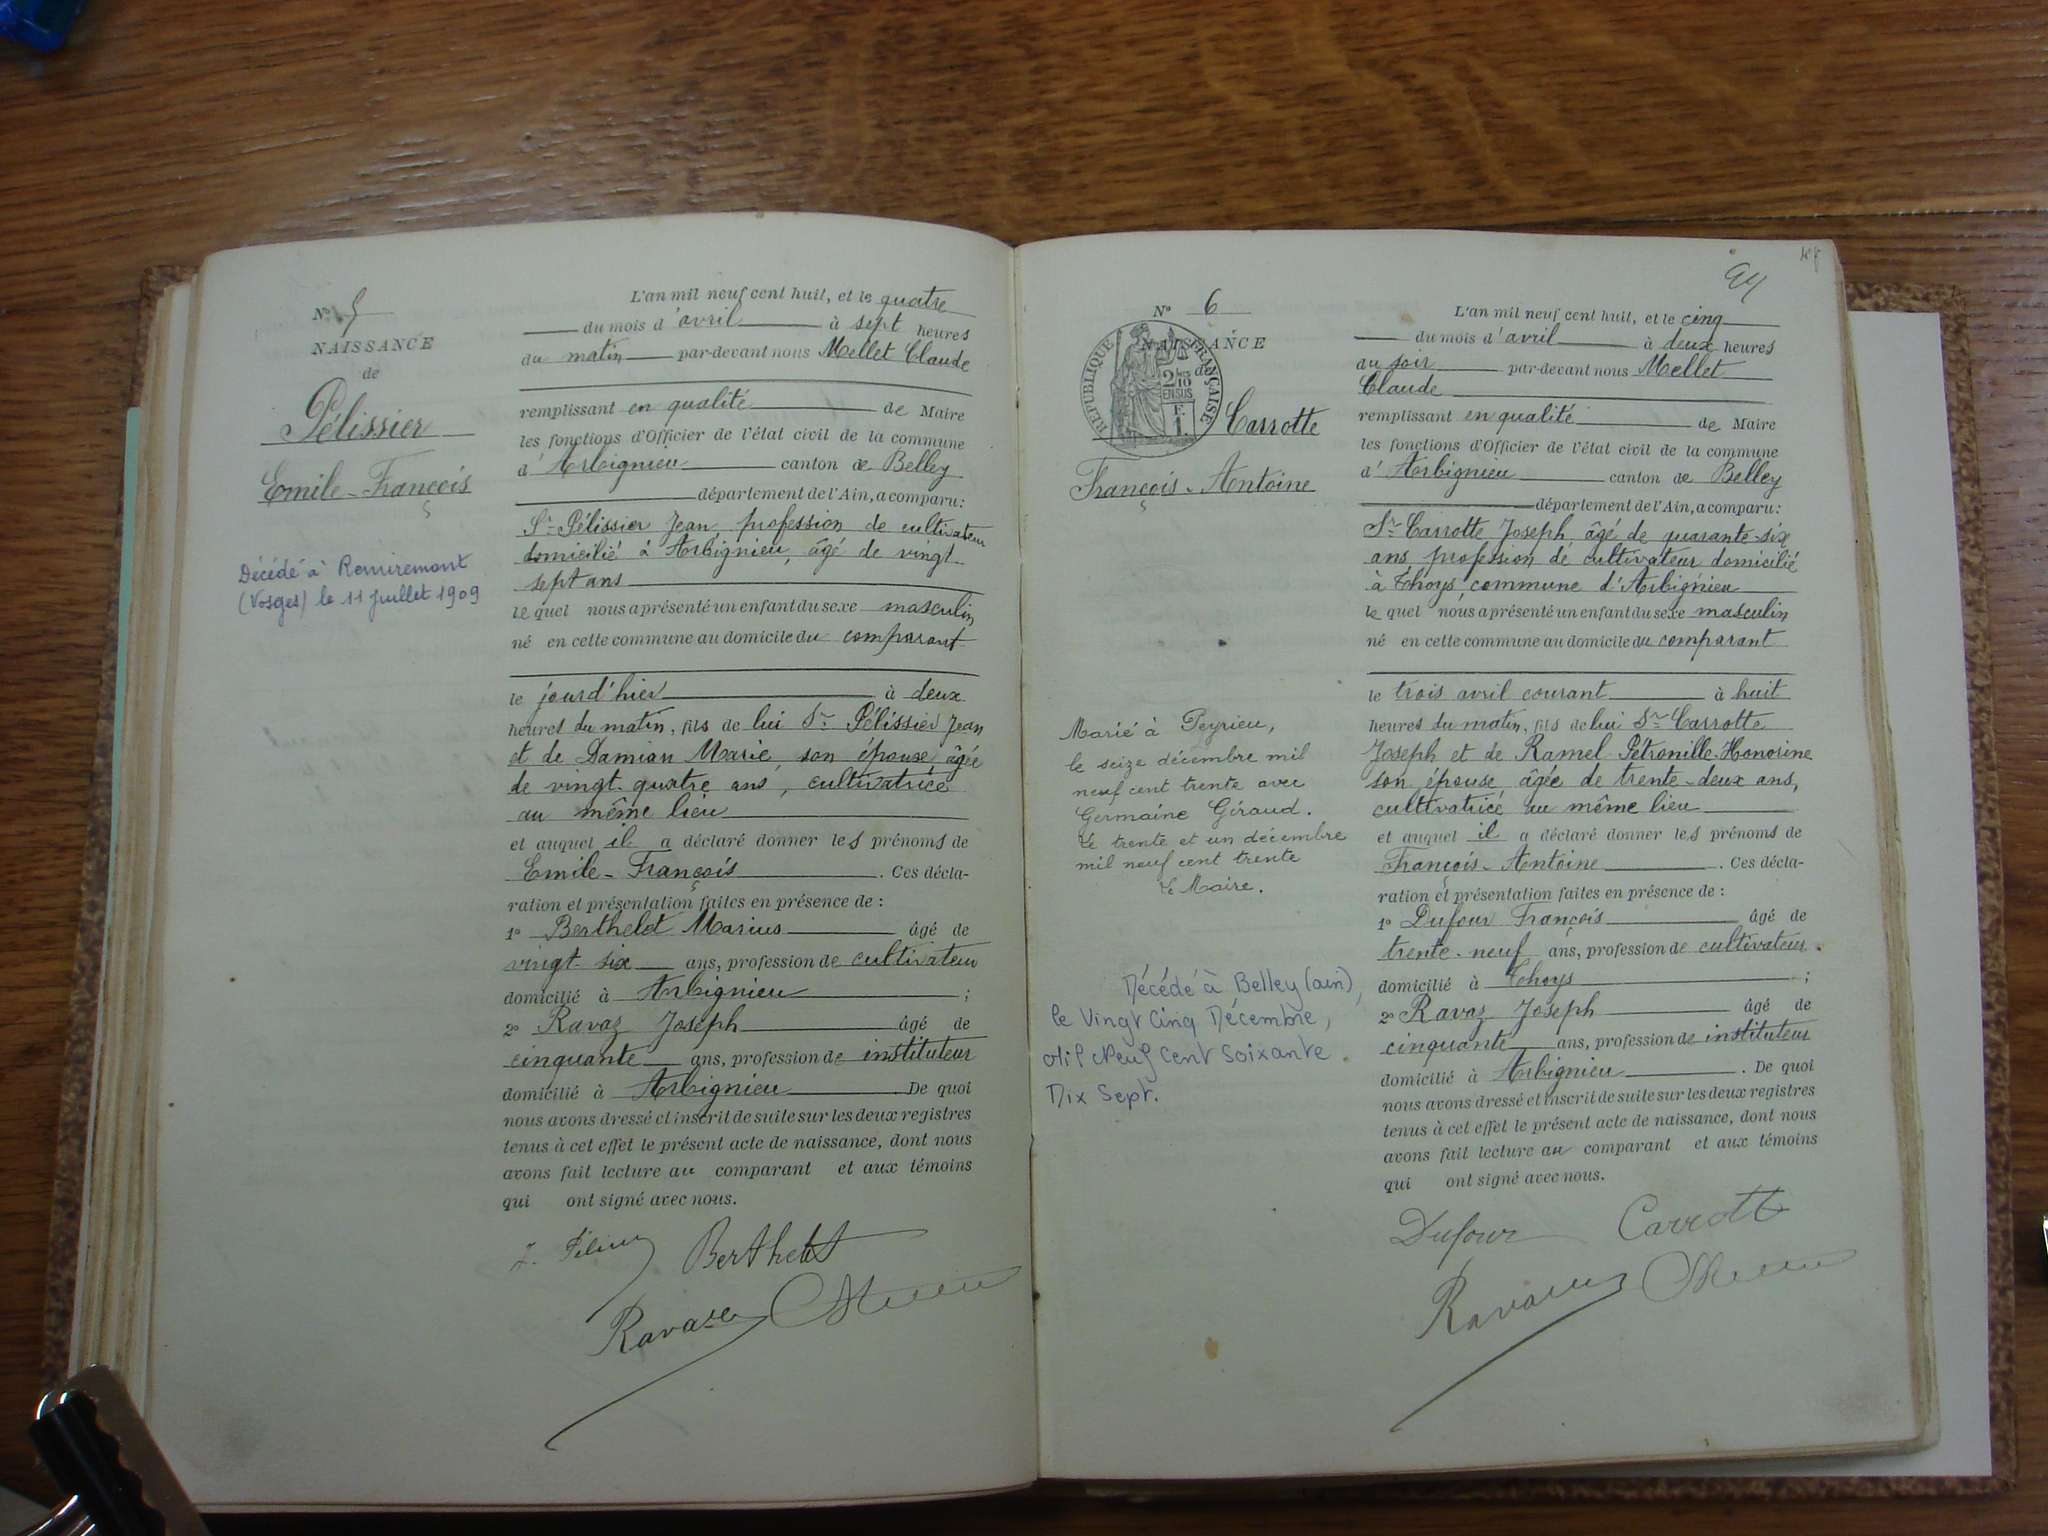 N° 5
NAISSANCE
de
Pélissier
Emile-François
Décédé à Remiremont
(Vosges) le 11 juillet 1909
L'an mil neuf cent huit, et le quatre
du mois d'avril à sept heures
du matin par-devant nous Mellet Claude
remplissant en qualité de Maire
les fonctions d'Officier de l'état civil de la commune
d'Arbignieu canton de Belley
département de l'Ain, a comparu:
Sr Pélissier Jean, profession de cultivateur
domicilié à Arbignieu, âgé de vingt-
sept ans
lequel nous a présenté un enfant du sexe masculin
né en cette commune au domicile du comparant
le jourd'hier à deux
heures du matin, fils de lui Sr Pélissier Jean
et de Damian Marie, son épouse, âgée
de vingt-quatre ans, cultivatrice
au même lieu
et auquel il a déclaré donner les prénoms de
Emile-François. Ces décla-
ration et présentation faites en présence de:
1° Berthelot Marius âgé de
vingt-six ans, profession de cultivateur
domicilié à Arbignieu;
2° Ravaz Joseph âgé de
cinquante ans, profession de instituteur
domicilié à Arbignieu. De quoi
nous avons dressé et inscrit de suite sur les deux registres
tenus à cet effet le présent acte de naissance, dont nous
avons fait lecture au comparant et aux témoins
qui ont signé avec nous.
Berthelot
Ravaz
94
N° 6
NAISSANCE
de
REPUBLIQUE FRANÇAISE
2/10 EN SUS
1 F.
Carrotte
François-Antoine
Marié à Peyrieu,
le seize décembre mil
neuf cent trente avec
Germaine Giraud.
Le trente et un décembre
mil neuf cent trente
Le Maire.
Décédé à Belley (ain),
le Vingt Cinq Décembre,
Mil Neuf Cent Soixante
Dix Sept.
L'an mil neuf cent huit, et le cinq
du mois d'avril à deux heures
du soir par-devant nous Mellet
Claude
remplissant en qualité de Maire
les fonctions d'Officier de l'état civil de la commune
d'Arbignieu canton de Belley
département de l'Ain, a comparu:
Sr Carrotte Joseph, âgé de quarante-six
ans, profession de cultivateur domicilié
à Thoys, commune d'Arbignieu
lequel nous a présenté un enfant du sexe masculin
né en cette commune au domicile du comparant
le trois avril courant à huit
heures du matin, fils de lui Sr Carrotte
Joseph et de Ramel Pétronille-Honorine
son épouse, âgée de trente-deux ans,
cultivatrice au même lieu
et auquel il a déclaré donner les prénoms de
François-Antoine. Ces décla-
ration et présentation faites en présence de:
1° Dufour François âgé de
trente-neuf ans, profession de cultivateur
domicilié à Thoys;
2° Ravaz Joseph âgé de
cinquante ans, profession de instituteur
domicilié à Arbignieu. De quoi
nous avons dressé et inscrit de suite sur les deux registres
tenus à cet effet le présent acte de naissance, dont nous
avons fait lecture au comparant et aux témoins
qui ont signé avec nous.
Dufour Carrotte